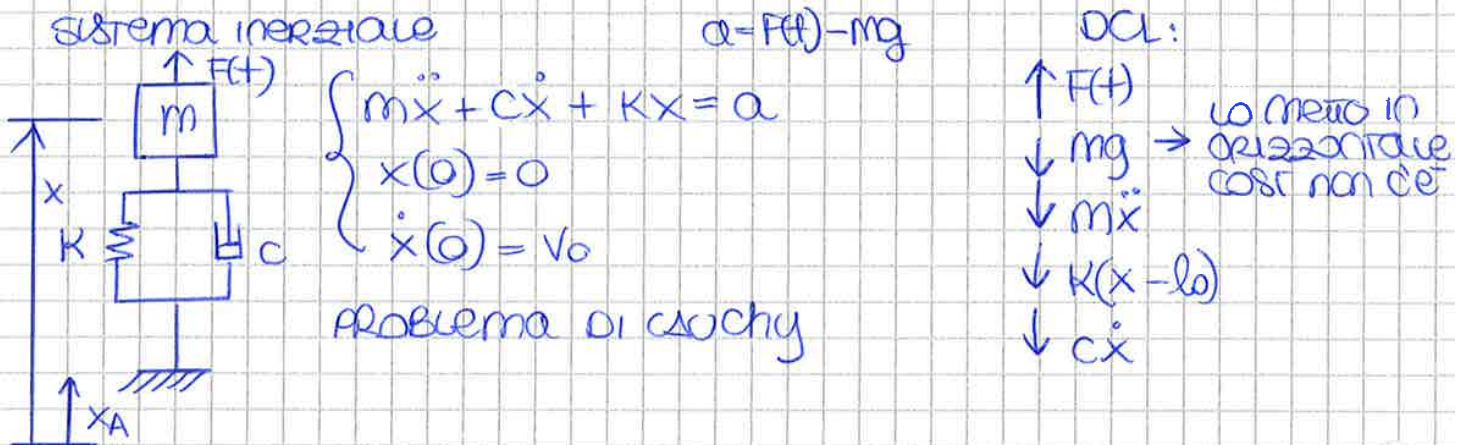 SISTEMA INERZIALE
a=F(t)-mg
DCL:
F(t)
m
x
K
C
xA
mẍ + cẋ + Kx = a
x(0)=0
ẋ(0)= Vo
PROBLEMA DI CAUCHY
F(t)
mg → LO METTO IN
ORIZZONTALE
COSÌ NON C'È
mẍ
K(x-lo)
cẋ